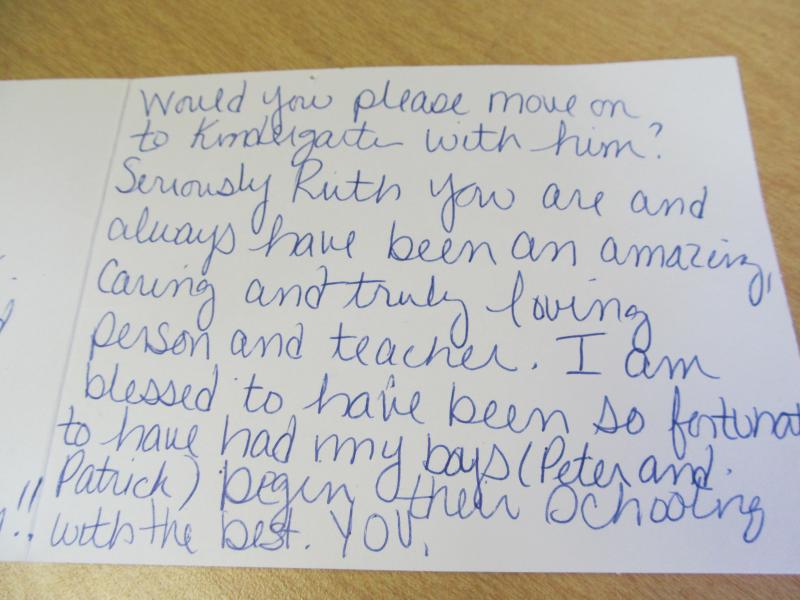 Would you please move on
to Kindergarten with him?
Seriously Ruth you are and
always have been an amazing,
Caring and truly loving
person and teacher. I am
blessed to have been so fortunat
to have had my boys (Peter and
Patrick) begin their schooling
!! with the best. YOU.